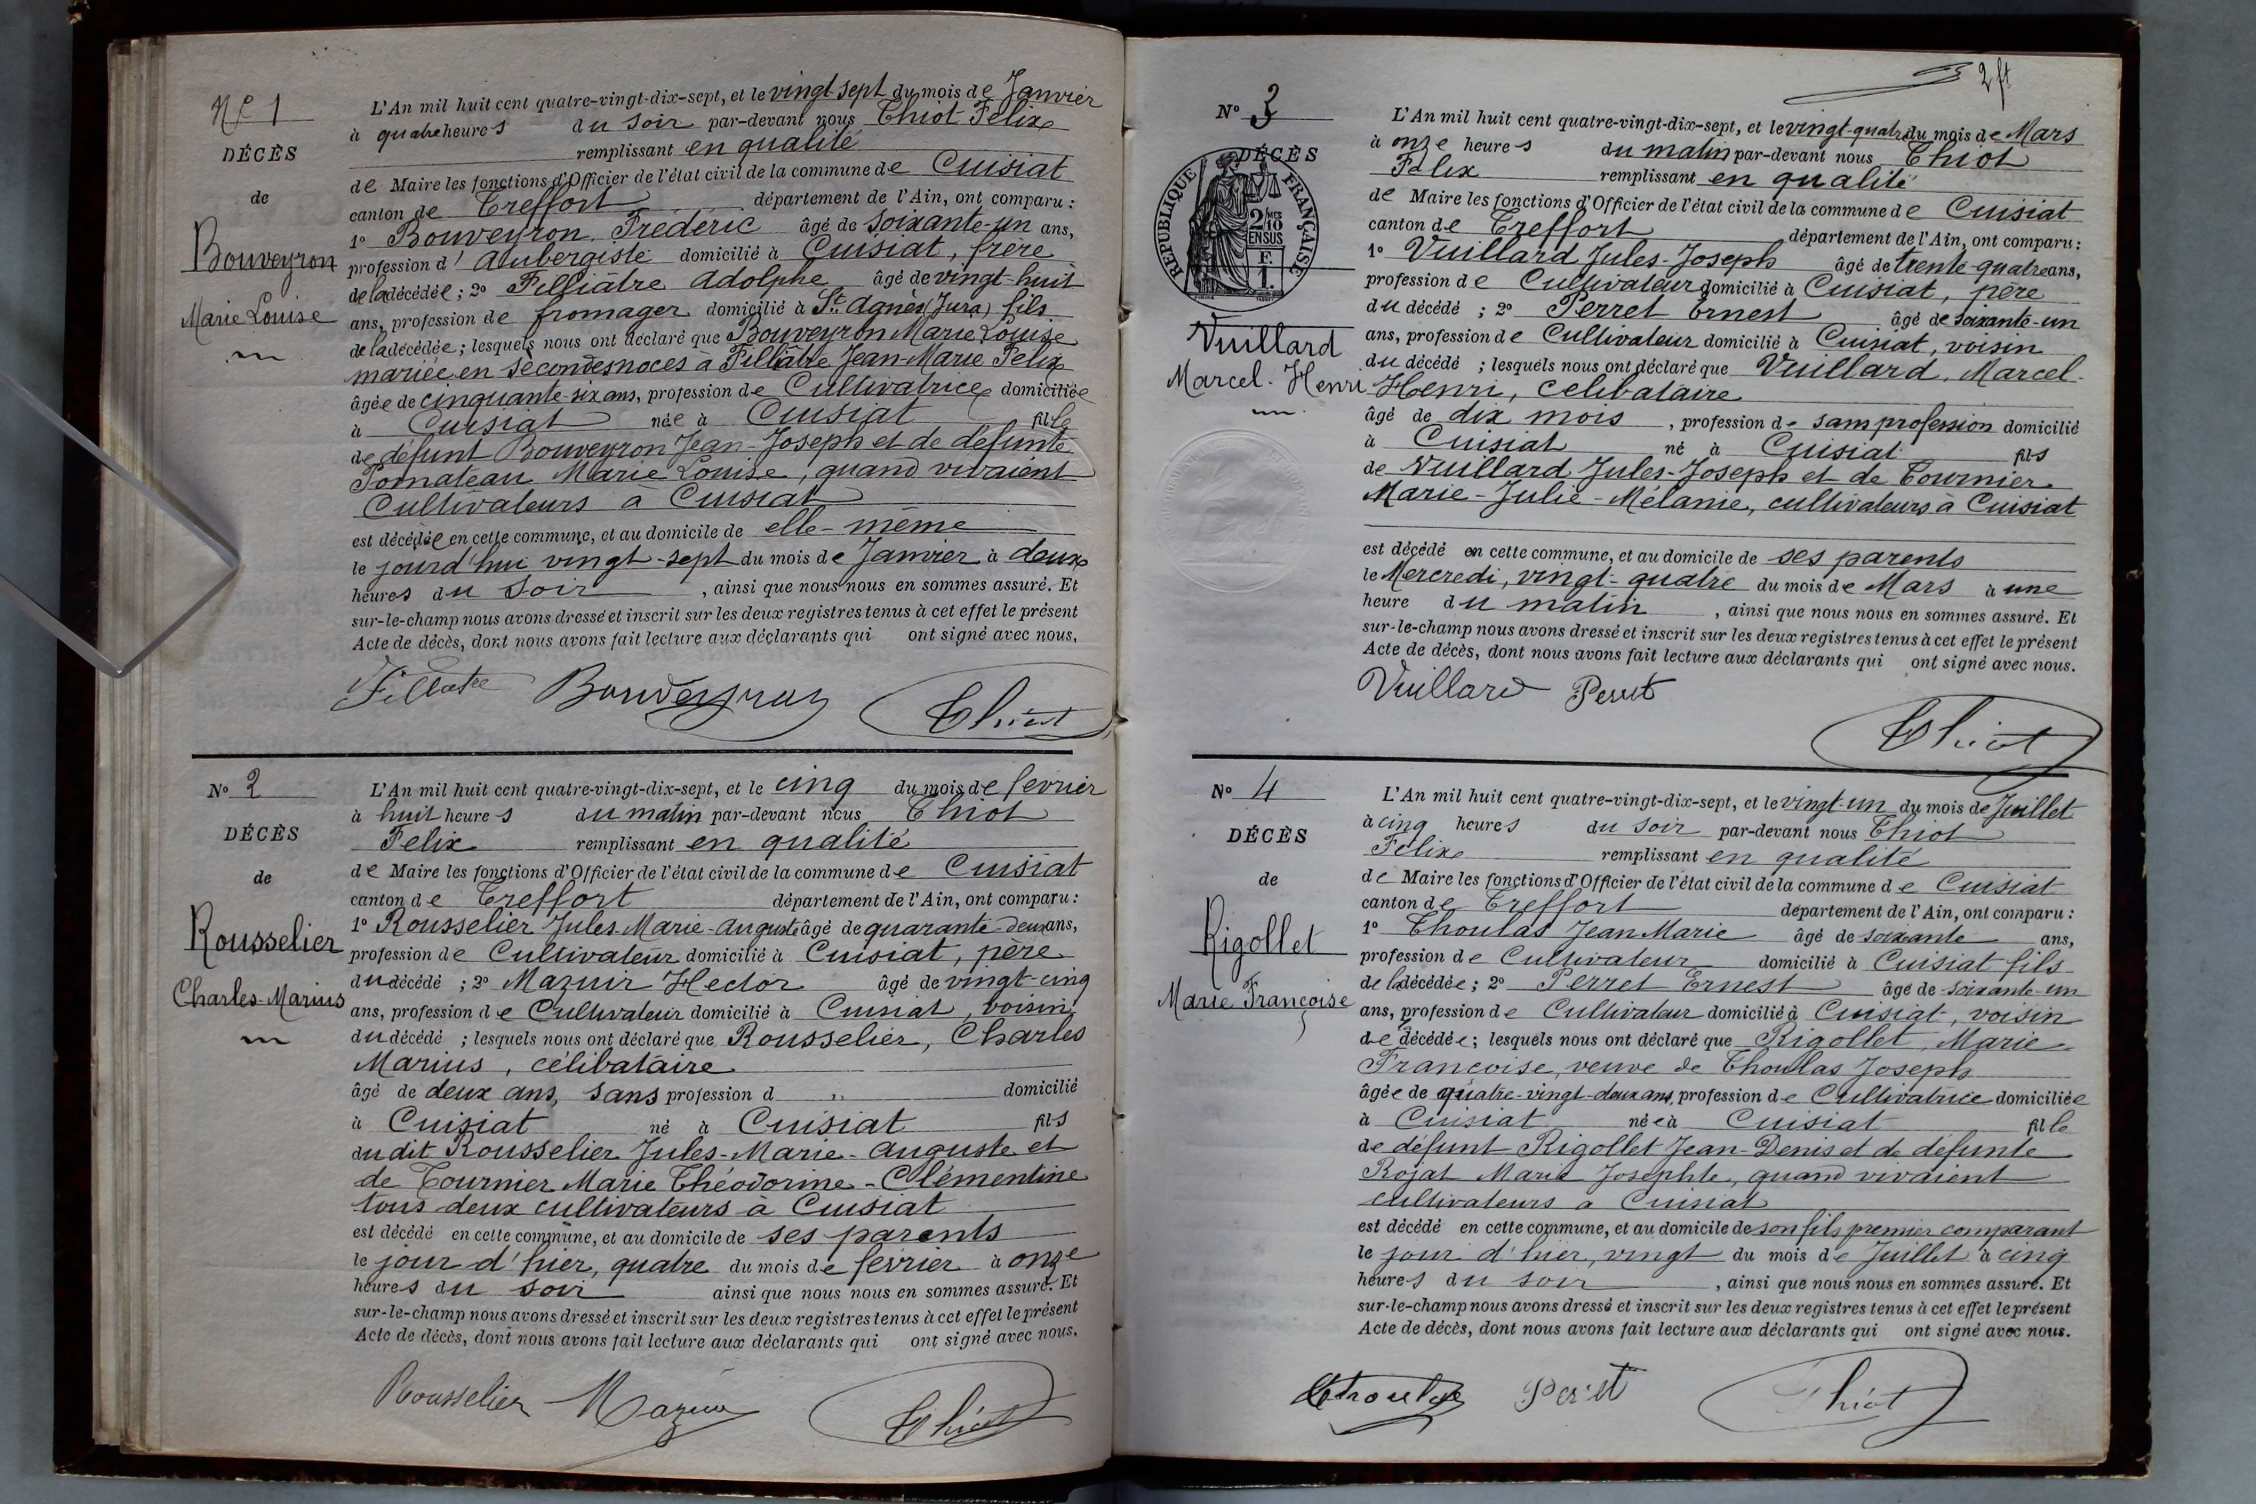 N° 1
DÉCÈS
de
Bouveyron
Marie Louise
L'An mil huit cent quatre-vingt-dix-sept, et le vingt sept du mois de Janvier
à quatre heures du soir par-devant nous Thiot Felix
remplissant en qualité
de Maire les fonctions d'Officier de l'état civil de la commune de Cuisiat
canton de Treffort département de l'Ain, ont comparu :
1° Bouveyron Frédéric âgé de soixante-un ans,
profession d'aubergiste domicilié à Cuisiat, frère
de la décédée ; 2° Filliâtre Adolphe âgé de vingt-huit
ans, profession de fromager domicilié à St. Agnès (Jura) fils
de la décédée ; lesquels nous ont déclaré que Bouveyron Marie Louise
mariée en secondes noces à Fillâtre Jean-Marie Felix
âgée de cinquante-six ans, profession de Cultivatrice domiciliée
à Cuisiat née à Cuisiat fille
de défunt Bouveyron Jean-Joseph et de défunte
Pomateau Marie Louise, quand vivaient
Cultivateurs à Cuisiat
est décédée en cette commune, et au domicile de elle-même
le jourd'hui vingt-sept du mois de Janvier à deux
heures du soir, ainsi que nous nous en sommes assuré. Et
sur-le-champ nous avons dressé et inscrit sur les deux registres tenus à cet effet le présent
Acte de décès, dont nous avons fait lecture aux déclarants qui ont signé avec nous.
Fillatre Bouveyron Thiot
N° 2
DÉCÈS
de
Rousselier
Charles-Marius
L'An mil huit cent quatre-vingt-dix-sept, et le cinq du mois de février
à huit heures du matin par-devant nous Thiot
Felix remplissant en qualité
de Maire les fonctions d'Officier de l'état civil de la commune de Cuisiat
canton de Treffort département de l'Ain, ont comparu :
1° Rousselier Jules-Marie-auguste âgé de quarante-deux ans,
profession de Cultivateur domicilié à Cuisiat, père
du décédé ; 2° Mazuir Hector âgé de vingt-cinq
ans, profession de Cultivateur domicilié à Cuisiat, voisin
du décédé ; lesquels nous ont déclaré que Rousselier, Charles
Marius, célibataire
âgé de deux ans, sans profession d " domicilié
à Cuisiat né à Cuisiat fils
du dit Rousselier Jules-Marie-auguste et
de Tournier Marie Théodorine-Clémentine
tous deux cultivateurs à Cuisiat
est décédé en cette commune, et au domicile de ses parents
le jour d'hier, quatre du mois de février à onze
heures du soir ainsi que nous nous en sommes assuré. Et
sur-le-champ nous avons dressé et inscrit sur les deux registres tenus à cet effet le présent
Acte de décès, dont nous avons fait lecture aux déclarants qui ont signé avec nous.
Rousselier Mazuir Thiot
2 ft
N° 3
DÉCÈS
RÉPUBLIQUE FRANÇAISE
2/10 EN SUS
F. 1.
Vuillard
Marcel-Henri
L'An mil huit cent quatre-vingt-dix-sept, et le vingt-quatre du mois de Mars
à onze heures du matin par-devant nous Thiot
Felix remplissant en qualité
de Maire les fonctions d'Officier de l'état civil de la commune de Cuisiat
canton de Treffort département de l'Ain, ont comparu :
1° Vuillard Jules-Joseph âgé de trente-quatre ans,
profession de Cultivateur domicilié à Cuisiat, père
du décédé ; 2° Perret Ernest âgé de soixante-un
ans, profession de Cultivateur domicilié à Cuisiat, voisin
du décédé ; lesquels nous ont déclaré que Vuillard, Marcel-
Henri, celibataire
âgé de dix mois, profession de sans profession domicilié
à Cuisiat né à Cuisiat fils
de Vuillard Jules-Joseph et de Tournier
Marie-Julie-Mélanie, cultivateurs à Cuisiat
est décédé en cette commune, et au domicile de ses parents
le Mercredi, vingt-quatre du mois de Mars à une
heure du matin, ainsi que nous nous en sommes assuré. Et
sur-le-champ nous avons dressé et inscrit sur les deux registres tenus à cet effet le présent
Acte de décès, dont nous avons fait lecture aux déclarants qui ont signé avec nous.
Vuillard Perret
Thiot
N° 4
DÉCÈS
de
Rigollet
Marie Françoise
L'An mil huit cent quatre-vingt-dix-sept, et le vingt-un du mois de Juillet
à cinq heures du soir par-devant nous Thiot
Felix remplissant en qualité
de Maire les fonctions d'Officier de l'état civil de la commune de Cuisiat
canton de Treffort département de l'Ain, ont comparu :
1° Thoulas Jean Marie âgé de soixante ans,
profession de Cultivateur domicilié à Cuisiat fils
de la décédée ; 2° Perret Ernest âgé de soixante-un
ans, profession de Cultivateur domicilié à Cuisiat, voisin
de décédée ; lesquels nous ont déclaré que Rigollet, Marie
Françoise, veuve de Thoulas Joseph
âgée de quatre-vingt-deux ans, profession de Cultivatrice domiciliée
à Cuisiat née à Cuisiat fille
de défunt Rigollet Jean-Denis et de défunte
Rojat Marie Josephte, quand vivaient
cultivateurs à Cuisiat
est décédé en cette commune, et au domicile de son fils premier comparant
le jour d'hier, vingt du mois de Juillet à cinq
heures du soir, ainsi que nous nous en sommes assuré. Et
sur-le-champ nous avons dressé et inscrit sur les deux registres tenus à cet effet le présent
Acte de décès, dont nous avons fait lecture aux déclarants qui ont signé avec nous.
Thoulas Perret Thiot